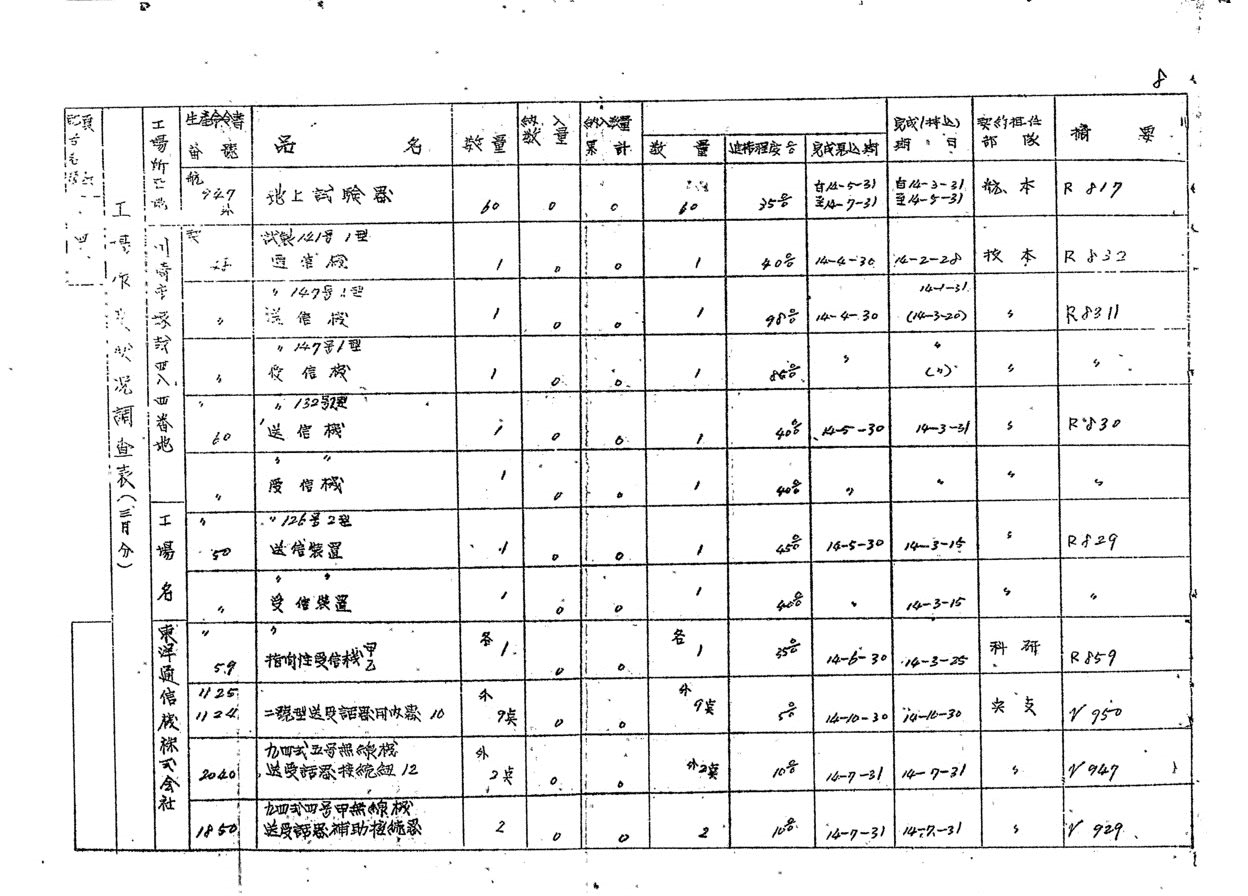 8
工場作業状況調査表(三月分)
工場所在地
川崎市塚越四八四番地
工場名
東洋通信機株式会社
生産命令書
番號
品 名
数量
納入
数量
納入数量
累計
数 量
進捗程度%
完成見込期
完成(持込)
期 日
契約担任
部 隊
摘 要
航
947
外
地上試験器
60 0 0 60 35%
自14-5-31
至14-7-31
自14-3-31
至14-5-31
航本 R 817
試製141号1型
通信機
1 0 0 1 40% 14-4-30 14-2-28 技本 R 832
〃147号1型
送信機
1 0 0 1 98% 14-4-30
14-1-31
(14-3-20)
〃 R8311
〃147号1型
受信機
1 0 0 1 85% 〃
〃
(〃)
〃 〃
〃 〃132号2型
60 送信機
1 0 0 1 40% 14-5-30 14-3-31 〃 R830
〃 〃
〃 受信機
1 0 0 1 40% 〃 〃 〃 〃
〃 〃126号2型
50 送信装置
1 0 0 1 45% 14-5-30 14-3-15 〃 R829
〃 〃
〃 受信装置
1 0 0 1 40% 〃 14-3-15 〃 〃
〃 〃
59 指向性受信機甲乙
各1 0 0 各1 35% 14-6-30 14-3-25 科研 R859
1125
1124 二號型送受話器用收器 10
外
9点 0 0
外
9点 5% 14-10-30 14-10-30 V 950
九四式五号無線機
2040 送受話器接続紐12
外
2点 0 0 外2点 10% 14-7-31 14-7-31 〃 V 947
九四式四号甲無線機
1850 送受話器補助接続器
2 0 0 2 10% 14-7-31 14-7-31 〃 V 929